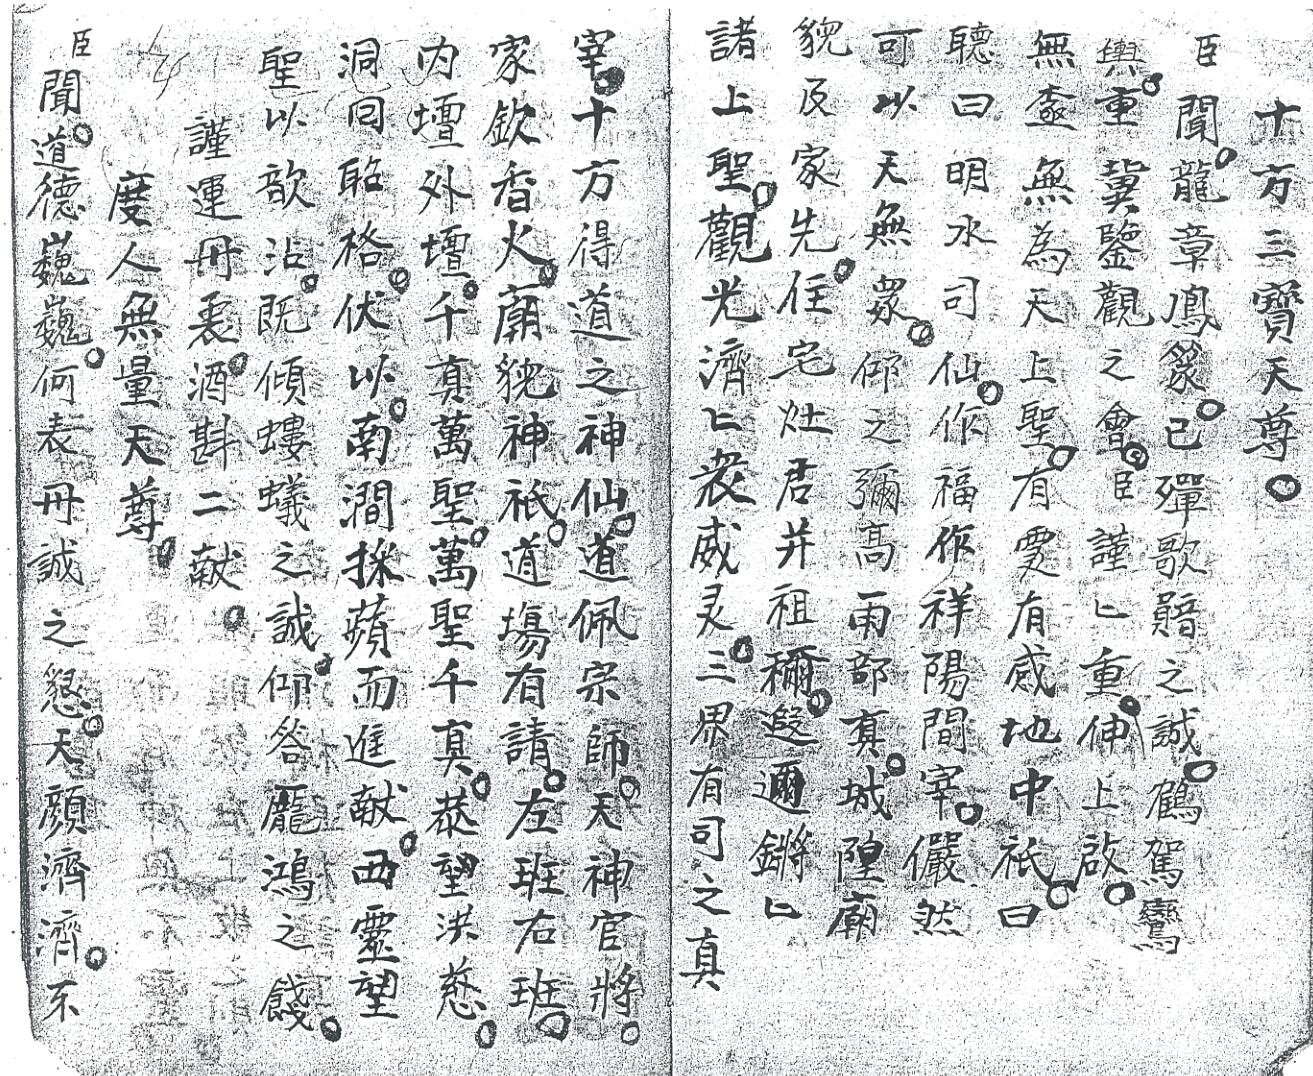 十方三寶天尊。
臣聞。龍章鳳篆。已殫歌賠之誠。鶴駕鸞
輿。重冀鑒觀之會。臣謹匕重。伸上啟。
無臺無為天上聖。有灵有感地中祇。曰
聽曰明水司仙。作福作祥陽間宰。儼然
可以天無衆。仰之彌高雨部真。城隍廟
貌及家先。住宅灶君并祖禰。遐邇鏘匕
諸上聖。觀光濟匕衆威灵。三界有司之真
宰。十方得道之神仙。道佩宗師。天神官將。
家欽香火。廟貌神祇。道場有請。左班右班。
内壇外壇。千真萬聖。萬聖千真。恭望洪慈。
洞回昭格。伏以。南澗採蘋而進献。西靈望
聖以歆沾。既傾螻蟻之誠。仰答龐鴻之餞。
謹運丹衷。酒斟二献。
度人無量天尊。
臣聞。道德巍巍。何表丹誠之懇。天顔濟濟。不